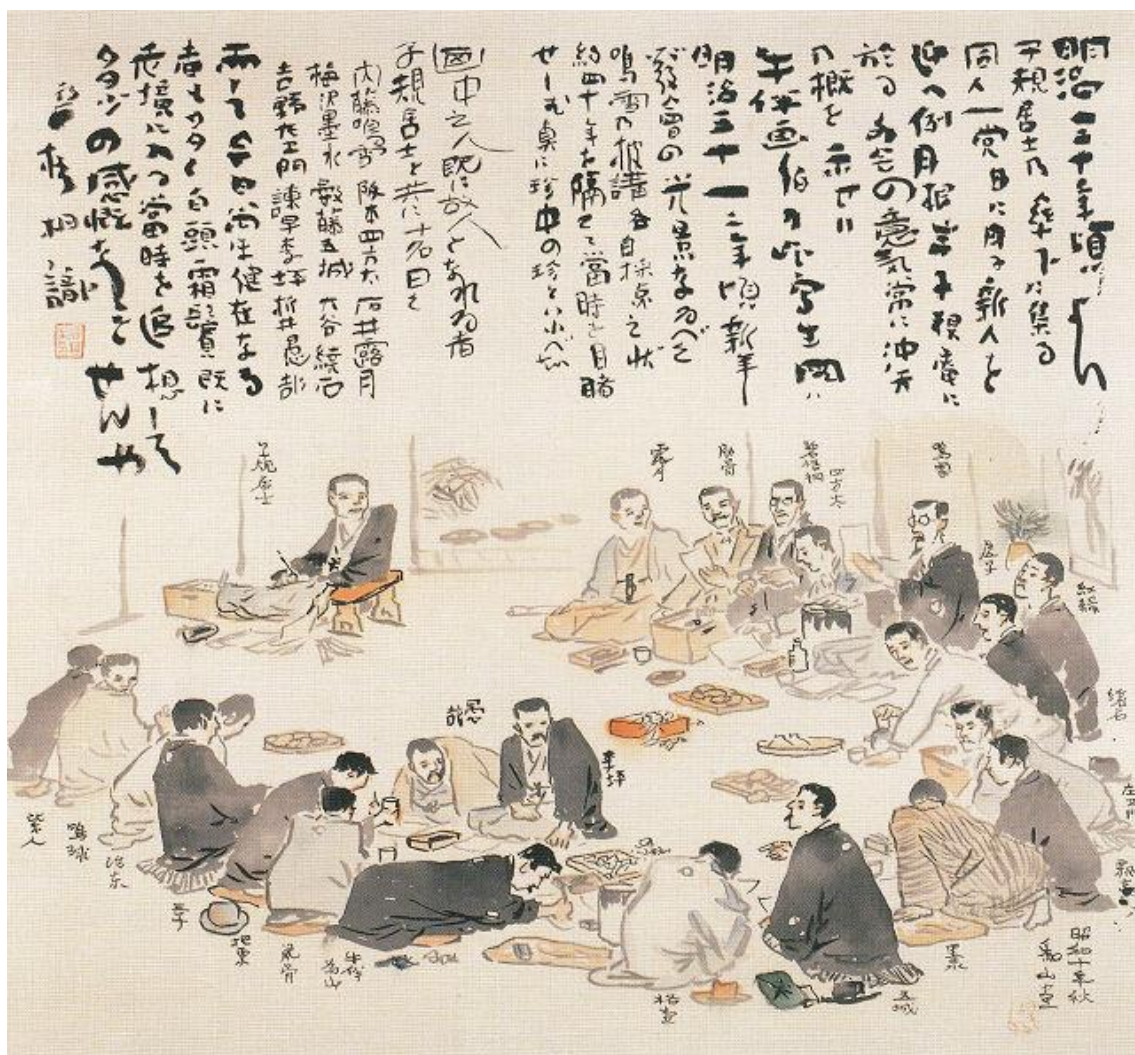 明治三十年頃より
子規居士の傘下に集る
同人一党日に月に新人を
迎へ例月根岸子規庵に
於る句会の意気常に沖天
の概を示せり
牛伴画伯の此写生図は
明治三十一二年頃新年
発会の光景なるべく
鳴雪の披講各自採点之状
約四十年を隔てて当時を目睹
せしむ真に珍中の珍といふべし
画中之人既に故人となれる者
子規居士と共に十名曰く
内藤鳴雪 阪本四方太 石井露月
梅沢墨水 数藤五城 大谷繞石
吉野左衛門 諫早李坪 折井愚哉
而して今日尚ほ健在なる
者も 白頭霜鬢既に
老境に入る当時を追想して
多少の感慨なしとせんや
碧梧桐識
鳴雪
四方太
碧梧桐
肋骨
露月
子規居士
虚子
紅緑
繞石
左衛門
飄亭
愚哉
李坪
墨水
五城
牛伴
為山
鼠骨
把栗
鳴球
紫人
昭和十年秋
為山